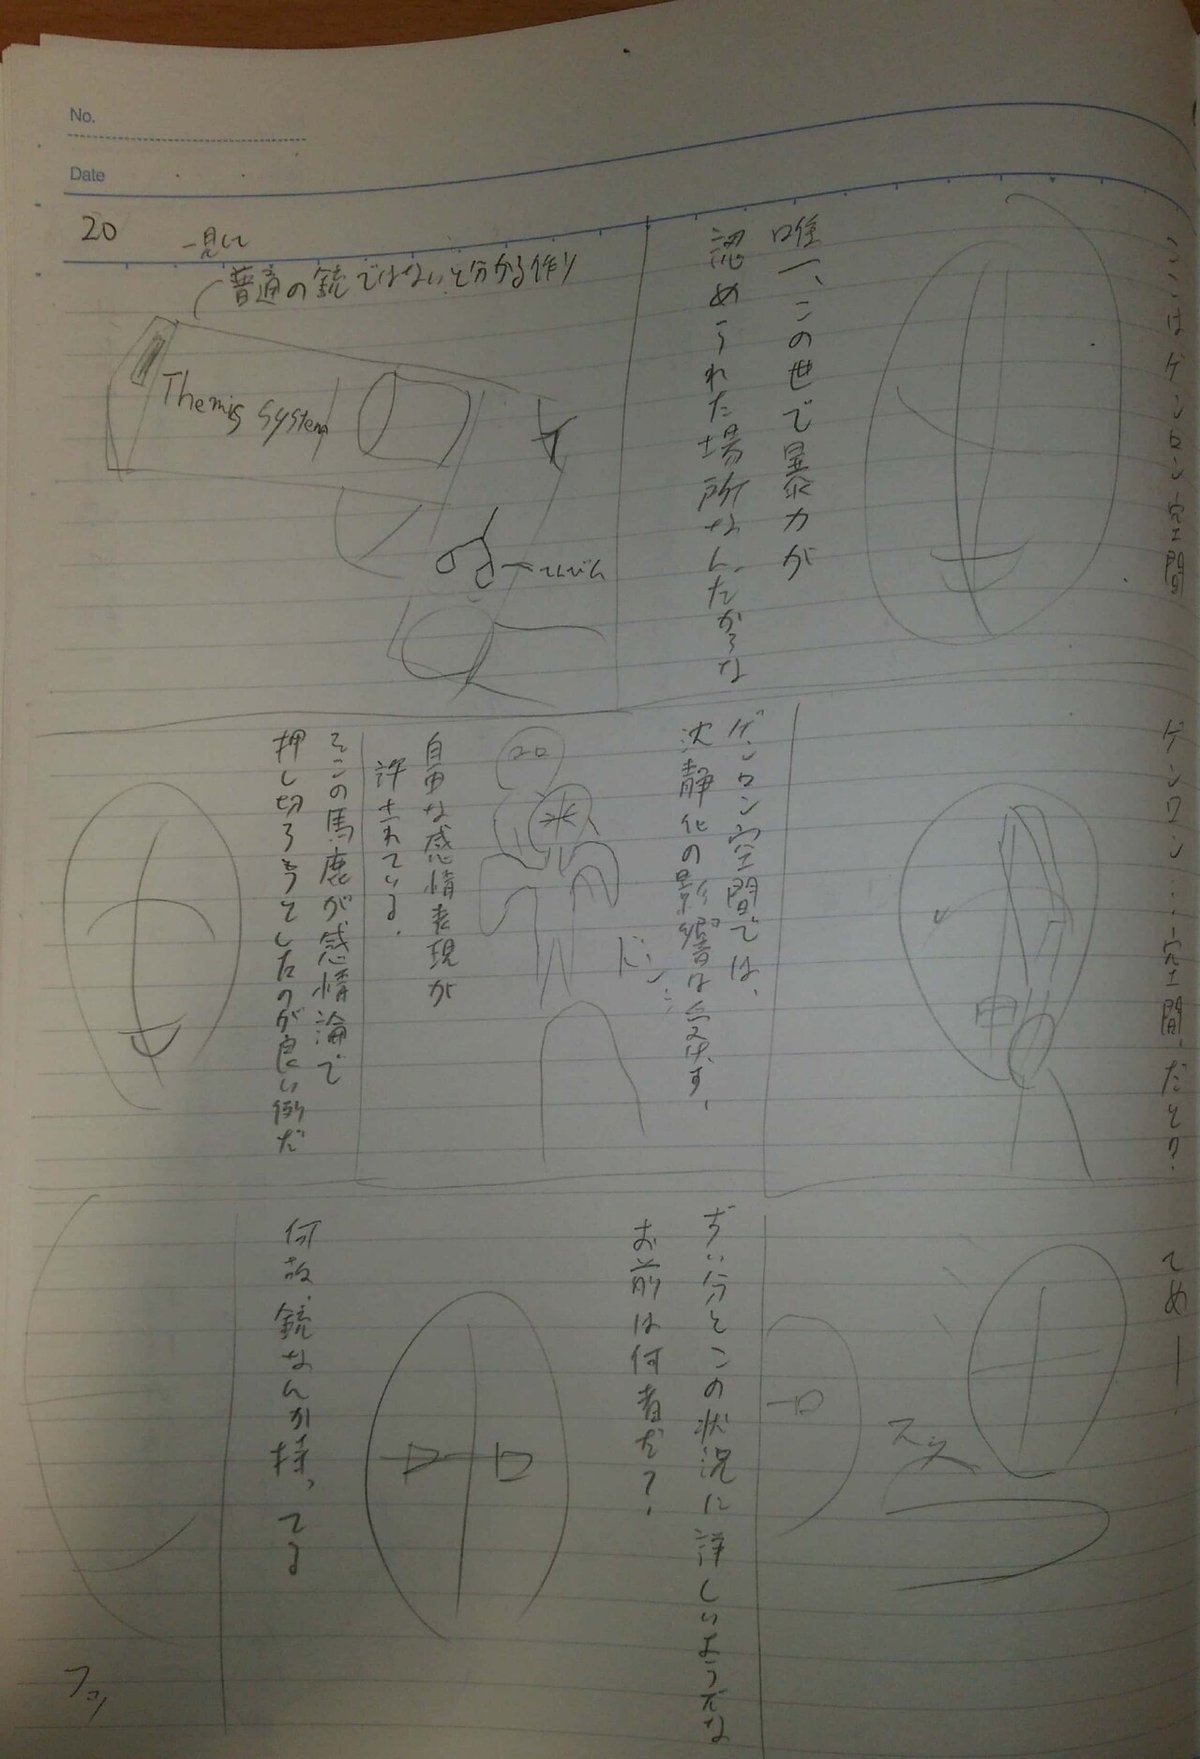 No.
Date
20
ここはゲンロン空間
唯一、この世で暴力が
認められた場所なんだからな
一見して
普通の銃ではないと分かる作り
Themis System
ゲンロン…空間、だと?
ゲンロン空間では、
沈静化の影響は受けず、
ドン
自由な感情表現が
許されている。
そこの馬鹿が感情論で
押し切ろうとしたのが良い例だ
てめ――
スッ
ずい分とこの状況に詳しいようだな
お前は何者だ?
何故、銃なんか持ってる
フッ